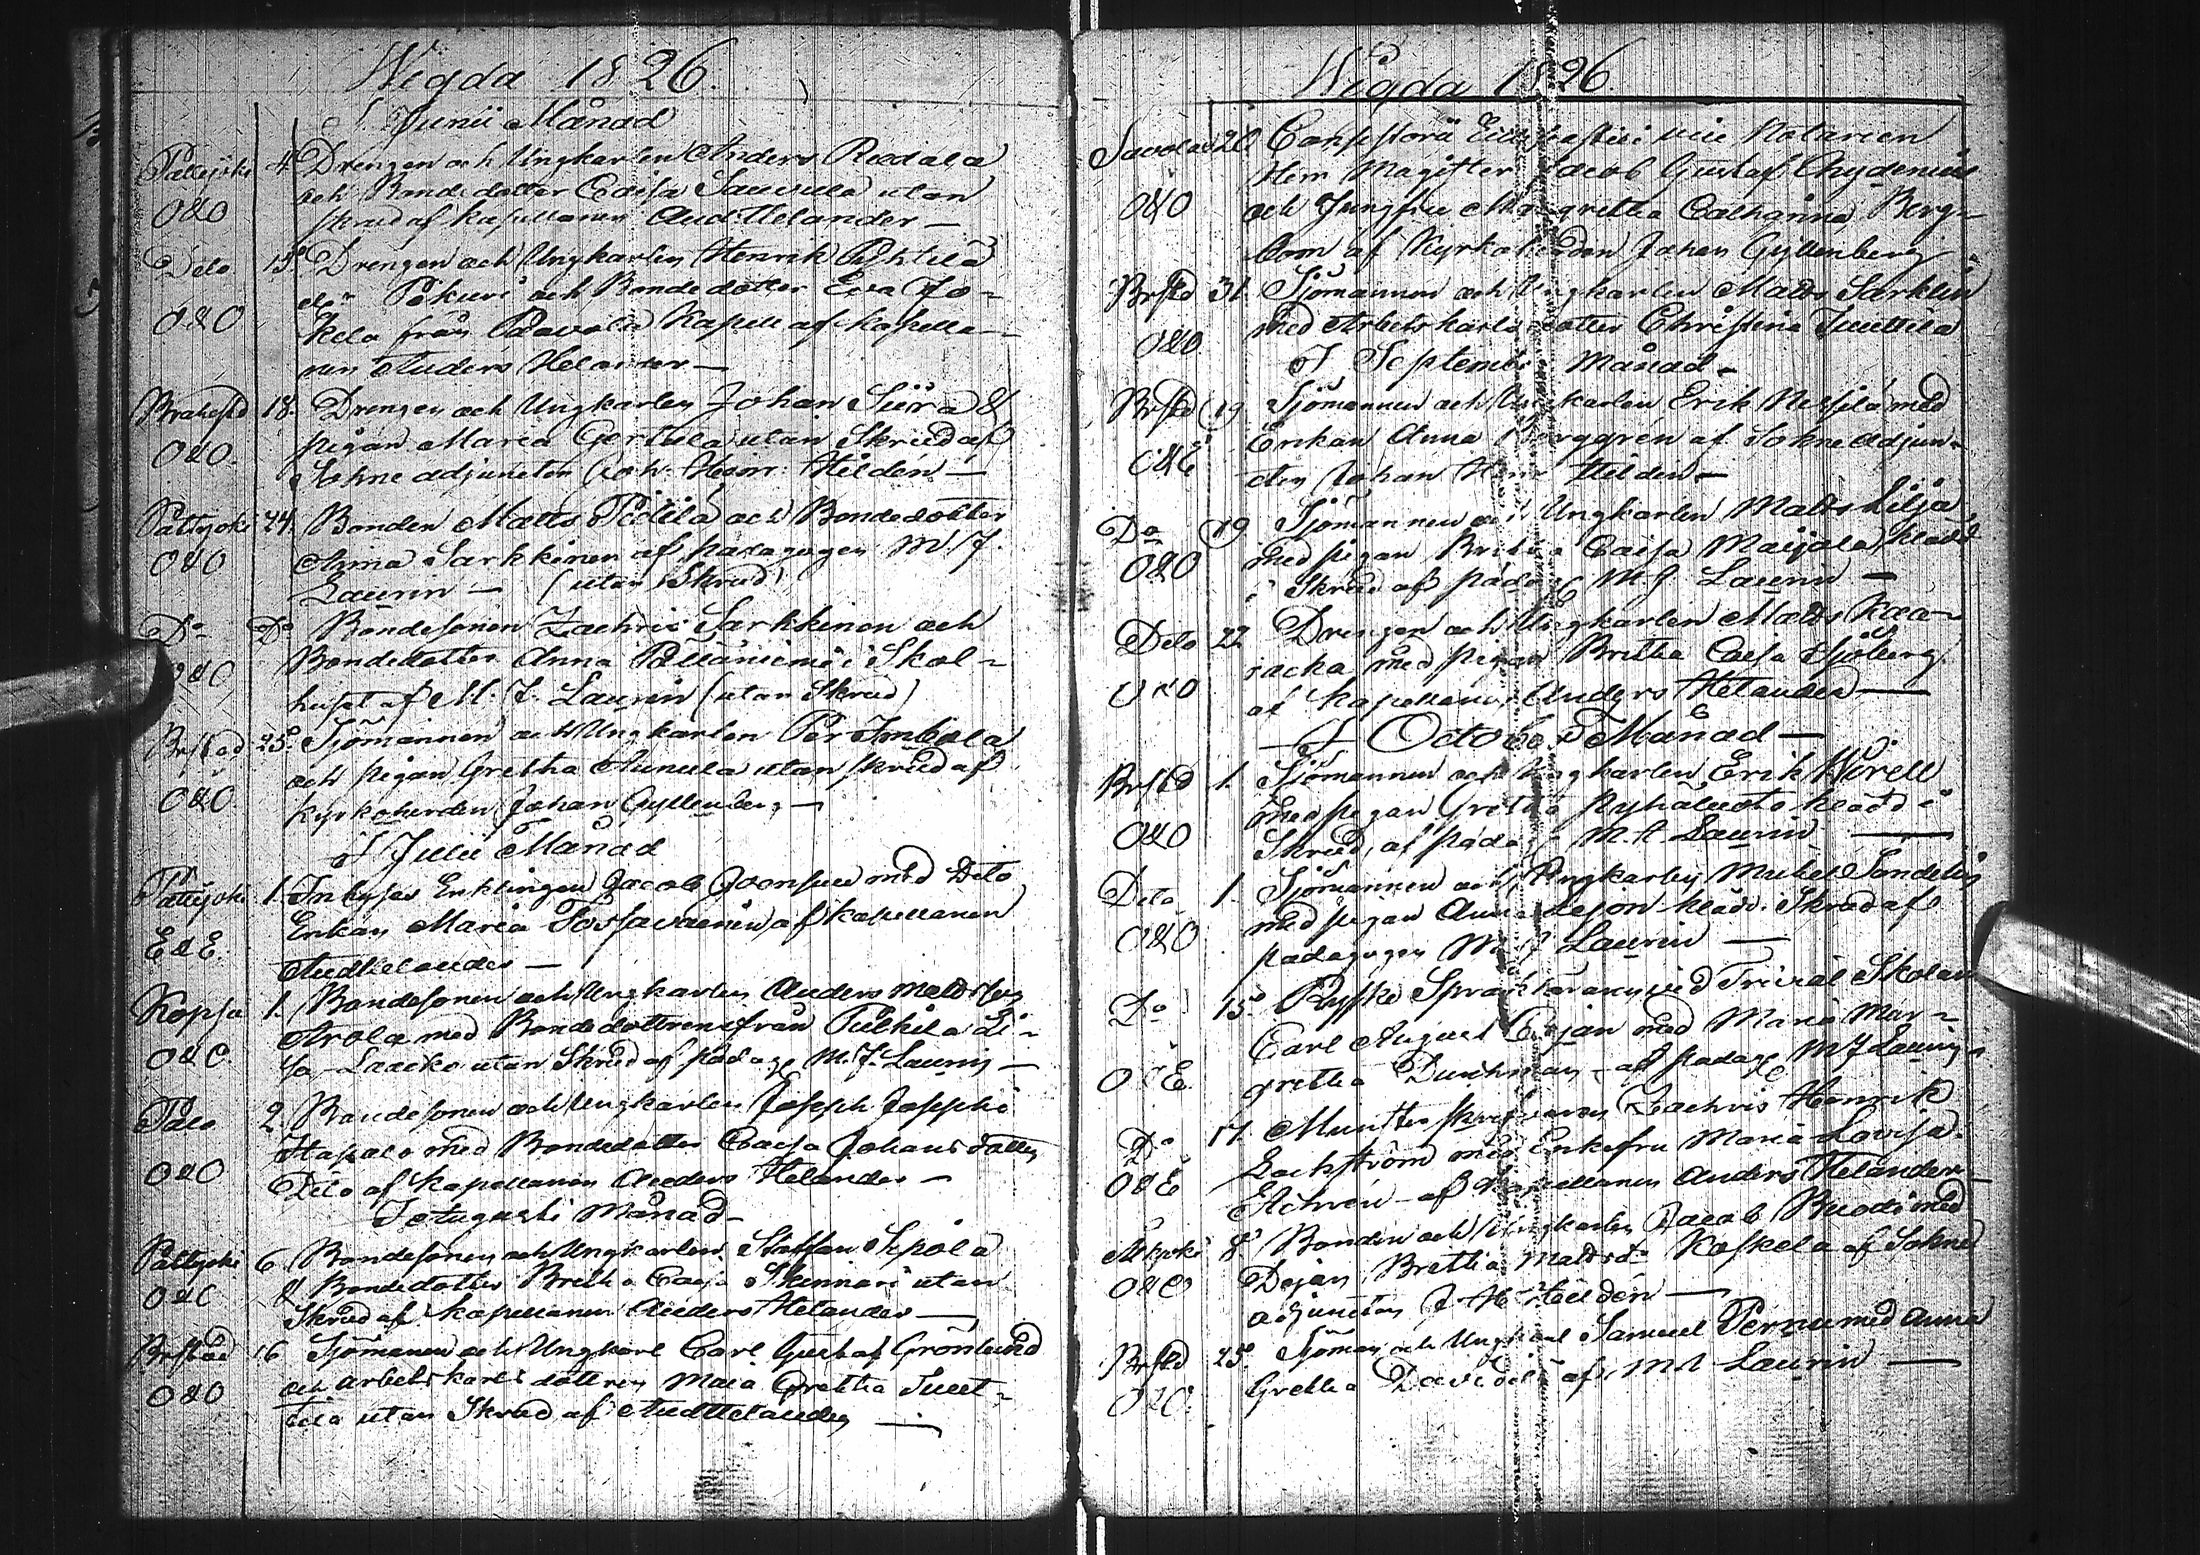 Wigda 1826.
I Junii Månad
Pattijoki 4. Drengen och Ungkarlen Anders Rudala
och Bondedotter Caisa Sauvula utan
O&O skrud af kapellanen And Helander —
Dito 13. Drengen och Ungkarlen Henrik Pihtilä
och Bondedotter Eva Jo-
O&O kela från Pavola Kapell af kapella-
nen Anders Helander —
Brahestd 18. Drengen och Ungkarlen Johan Siira &
pigan Maria Gertula utan Skrud af
O&O. Sokne adjuncten Joh. Henr. Hildén —
Pattijoki 24. Bonden Matts Pietilä och Bondedotter
O&O Anna Sarkkinen af pædagogen M. J.
Laurin — (utan Skrud)
Do Do Bondesonen Zachris Sarkkinen och
O&O Bondedotter Anna i Skol-
huset af M. J. Laurin (utan Skrud)
Brstad 25. Sjömannen och Ungkarlen Per Imbola
och pigan Gretha Aunula utan skrud af
O&O Kyrkoherden Johan Gyllenberg —
I Julii Månad
Pattijoki 1. Inhyses Enklingen Jacob Joensuu med Dito
E&E. Enkan Maria Tossavainen af kapellanen
And Helander —
Kopsa 1. Bondesonen och Ungkarlen Anders Mattsson
Arola med Bondedottren från Pulkila Li-
O&O. sa Laacko utan Skrud af Pædag M. J. Laurin —
Palo 2. Bondesonen och Ungkarlen Joseph Josephs
Haapalo med Bondedotter Caisa Johansdotter
O&O Dito af Kapellanen Anders Helander —
I Augusti Månad —
Pattijoki 6 Bondesonen och Ungkarlen Staffan Sipola
O&O & Bondedotter Britha Caisa Skinnari utan
Skrud af kapellanen Anders Helander —
Brstad 16 Sjömannen och Ungkarl Carl Gustaf Grönlund
O&O och arbetskarls dottren Maia Gretha Juut-
tila utan Skrud af And Helander —
Wigda 1826.
Savolax 20 Consistorii Ecclesiastici vice Notarien
Herr Magister Jacob Gustaf Chydenius
O&O och Jungfru Margretha Catharina Berg-
bom af Kyrkoherden Johan Gyllenberg
Brstd 31. Sjömannen och Ungkarlen Matts Sarklin
med Arbetskarls dotter Christina Juuttila
O&O I September Månad —
Brstd 19 Sjömannen och Ungkarlen Erik Nissilä med
Enkan Anna Berggren af Sokne adjun-
O&E cten Johan Henr Hildén —
Do 19 Sjömannen och Ungkarlen Matts Lilja
med pigan Britha Caisa Maijala klädd
O&O i Skrud af pädag M J Laurin —
Dito 22 Drengen och Ungkarlen Matts Kaa-
jacka med pigan Britha Caisa Sjöberg
O&O af Kapellanen Anders Helander —
I October Månad —
Brstd 1. Sjömannen och Ungkarlen Erik Wirell
med pigan Gretha Pyhäluoto klädd i
O&O Skrud, af pädag M. J. Laurin —
Dito 1. Sjömannen och Ungkarlen Michel Sandelin
med pigan Anna Lejon klädd i Skrud af
O&O pædagogen M J Laurin —
Do 15. Ryske Språkläraren vid Trivial Skolan
Carl August Cajan med Maria Mar-
O&E gretha Dunkman af pædag M J Laurin
Do 17. Munsterskrifvaren Zachris Henrik
Lackström med Enkefru Maria Lovisa
O&E Echren af Kapellanen Anders Helander
8 Bonden och Ungkarlen Jacob Ruodi med
O&O Dejan Britha Mattsdr Koskela af Sokne
adjuncten J. H. Hildén —
Brstd 25. Sjöman och Ungkarl Samuel Pernu med Anna
O&O. Gretha Davidila af M J Laurin —